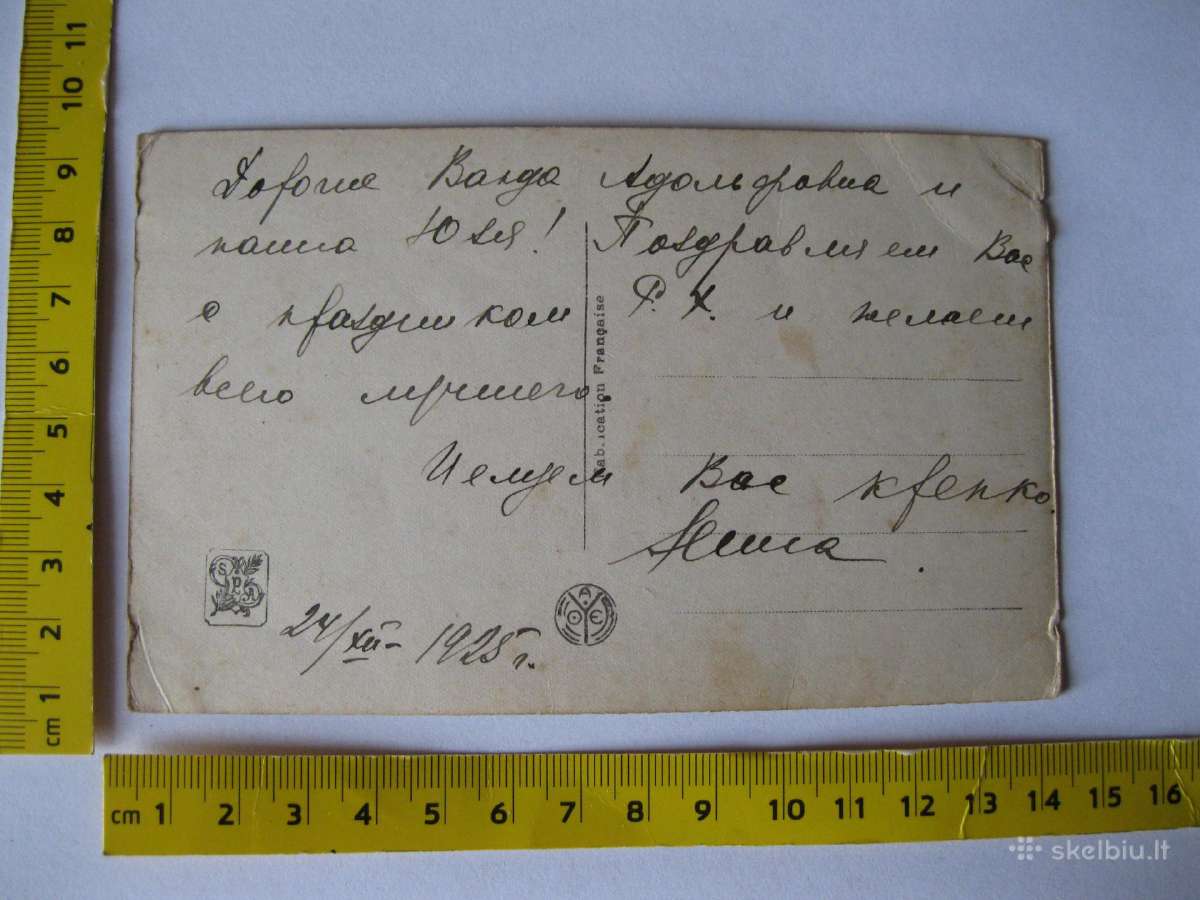 Дорогие Ванда Адольфовна и
наша Юзя! Поздравляем Вас
с праздником Р. Х. и желаем
всего лучшего.
Целуем Вас крепко.
24/XII- 1925 г.
Fabrication Française
S.P.A
A.
O
E
cm 1 2 3 4 5 6 7 8 9 10 11
cm 1 2 3 4 5 6 7 8 9 10 11 12 13 14 15 16
skelbiu.lt